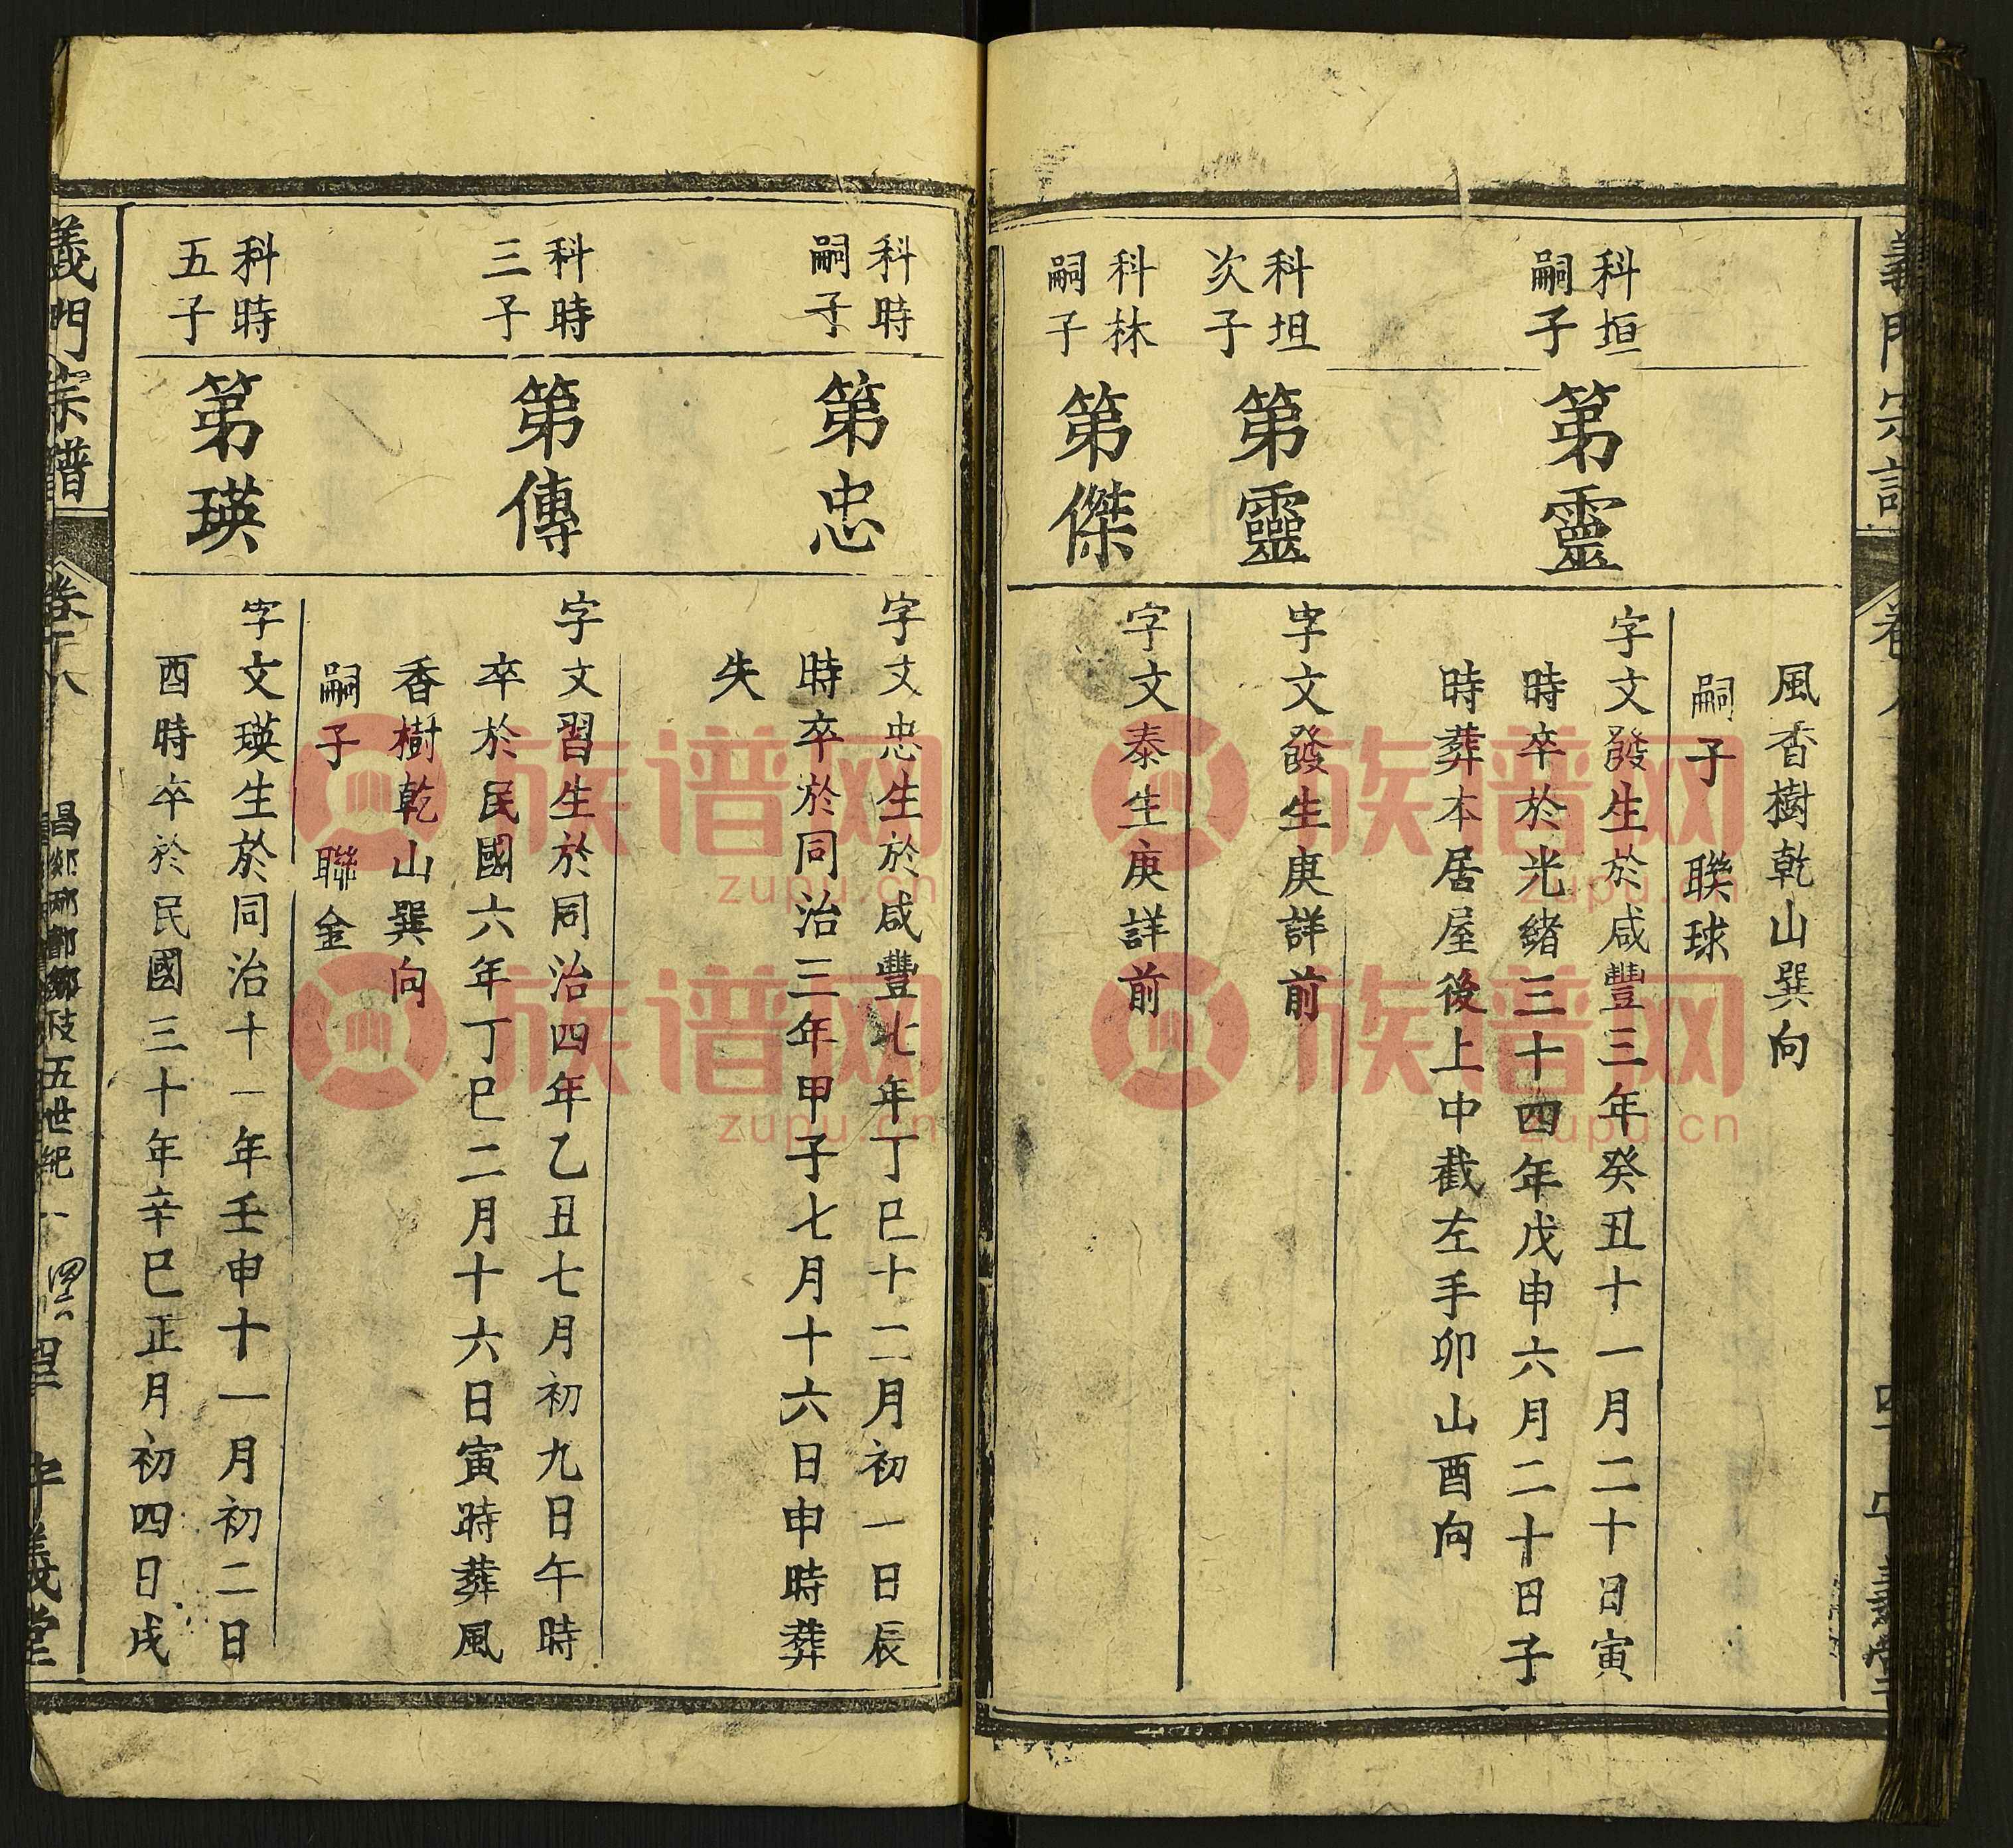 風香樹乾山巽向
嗣子 聯球
科垣
嗣子
第靈
字文發生於咸豐三年癸丑十一月二十日寅
時卒於光緒三十四年戊申六月二十日子
時葬本居屋後上中截左手卯山酉向
科坦
次子
第靈
字文發生庚詳前
科林
嗣子
第傑
字文泰生庚詳前
科時
嗣子
第忠
字文忠生於咸豐七年丁巳十二月初一日辰
時卒於同治三年甲子七月十六日申時葬
失
科時
三子
第傳
字文習生於同治四年乙丑七月初九日午時
卒於民國六年丁巳二月十六日寅時葬風
香樹乾山巽向
嗣子 聯金
科時
五子
第瑛
字文瑛生於同治十一年壬申十一月初二日
酉時卒於民國三十年辛巳正月初四日戌
義門宗譜
五世紀
義堂
族谱网
zupu.cn
族谱网
zupu.cn
族谱网
zupu.cn
族谱网
zupu.cn